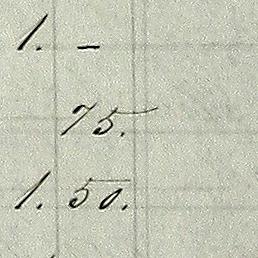 1. –
75.
1. 50.